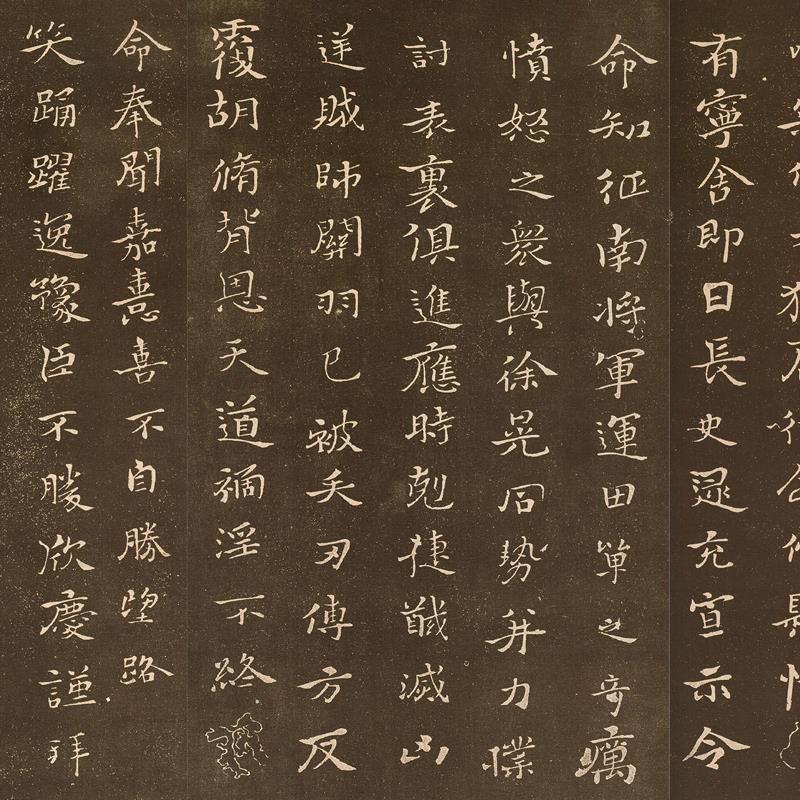 有寧舍即日長史逯充宣示令
命知征南將軍運田單之奇厲
憤怒之衆與徐晃同勢并力撲
討表裏俱進應時剋捷馘滅凶
逆賊帥關羽已被矢刃傅方反
覆胡脩背恩天道禍淫不終
命奉聞嘉憙喜不自勝望路
笑踊躍逸豫臣不勝欣慶謹拜